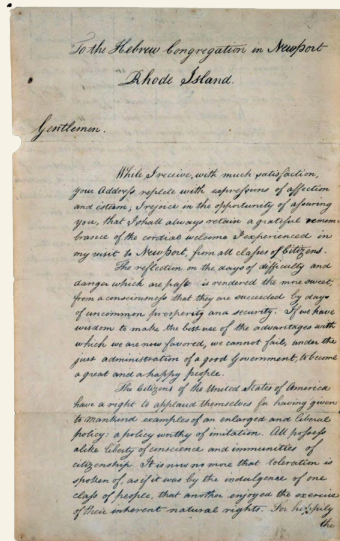 To the Hebrew Congregation in Newport
Rhode Island.
Gentlemen.
While I receive, with much satisfaction,
your Address replete with expressions of affection
and esteem, I rejoice in the opportunity of assuring
you, that I shall always retain a grateful remem-
brance of the cordial welcome I experienced in
my visit to Newport, from all classes of Citizens.
The reflection on the days of difficulty and
danger which are past is rendered the more sweet,
from a consciousness that they are succeeded by days
of uncommon prosperity and security. If we have
wisdom to make the best use of the advantages with
which we are now favored, we cannot fail, under the
just administration of a good Government, to become
a great and a happy people.
The Citizens of the United States of America
have a right to applaud themselves for having given
to mankind examples of an enlarged and liberal
policy: a policy worthy of imitation. All possess
alike liberty of conscience and immunities of
citizenship. It is now no more that toleration is
spoken of, as if it was by the indulgence of one
class of people, that another enjoyed the exercise
of their inherent natural rights. For happily
the